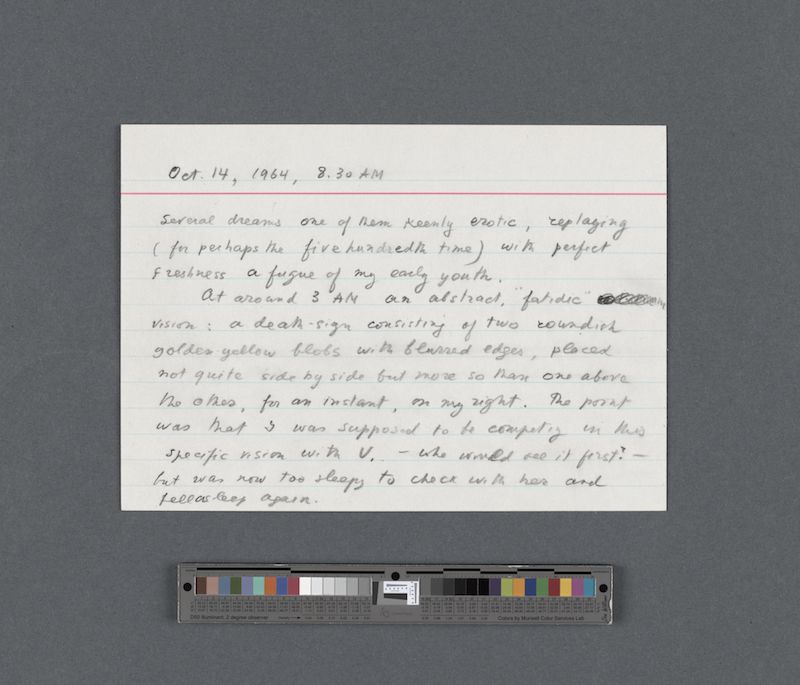 Oct. 14, 1964, 8.30 AM
Several dreams one of them keenly erotic, replaying
(for perhaps the five hundredth time) with perfect
freshness a fugue of my early youth.
At around 3 AM an abstract, "fatidic"
vision: a death-sign consisting of two roundish
golden-yellow blobs with blurred edges, placed
not quite side by side but more so than one above
the other, for an instant, on my right. The point
was that I was supposed to be competig in this
specific vision with V. – who would see it first? –
but was now too sleepy to check with her and
fell asleep again.
D50 Illuminant, 2 degree observer
Density
Colors by Munsell Color Services Lab